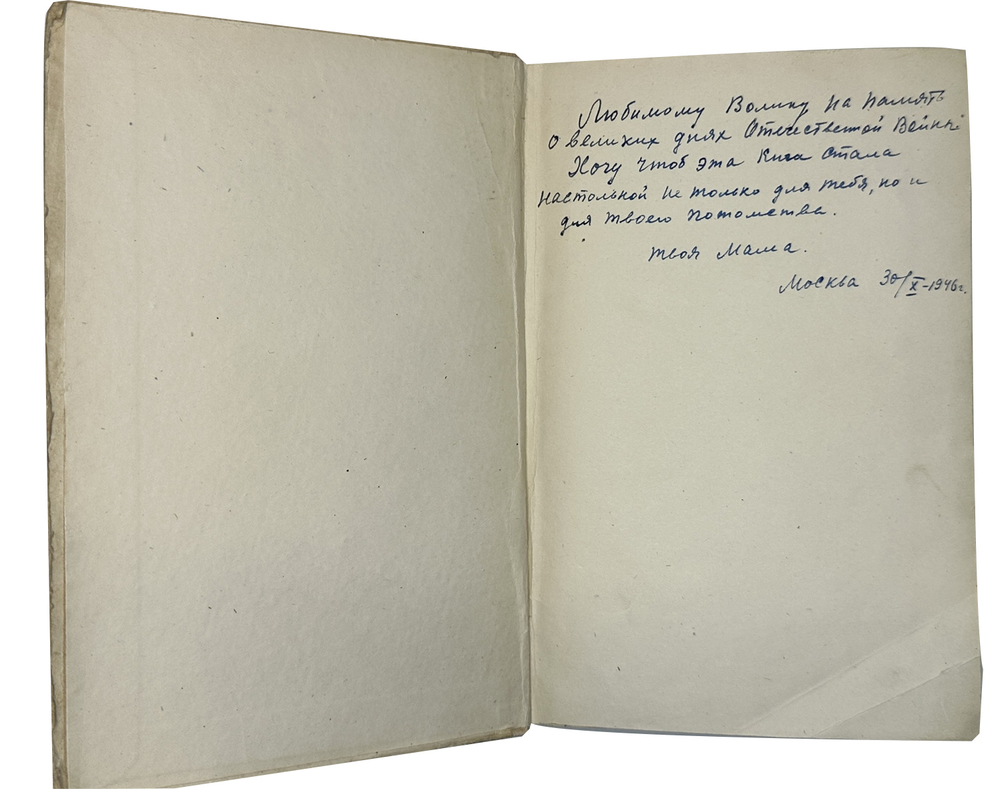 Любимому Волику на память
о великих днях Отечественной Войны.
Хочу чтоб эта Книга стала
настольной не только для тебя, но и
для твоего потомства.
твоя Мама.
Москва 30/X-1946г.